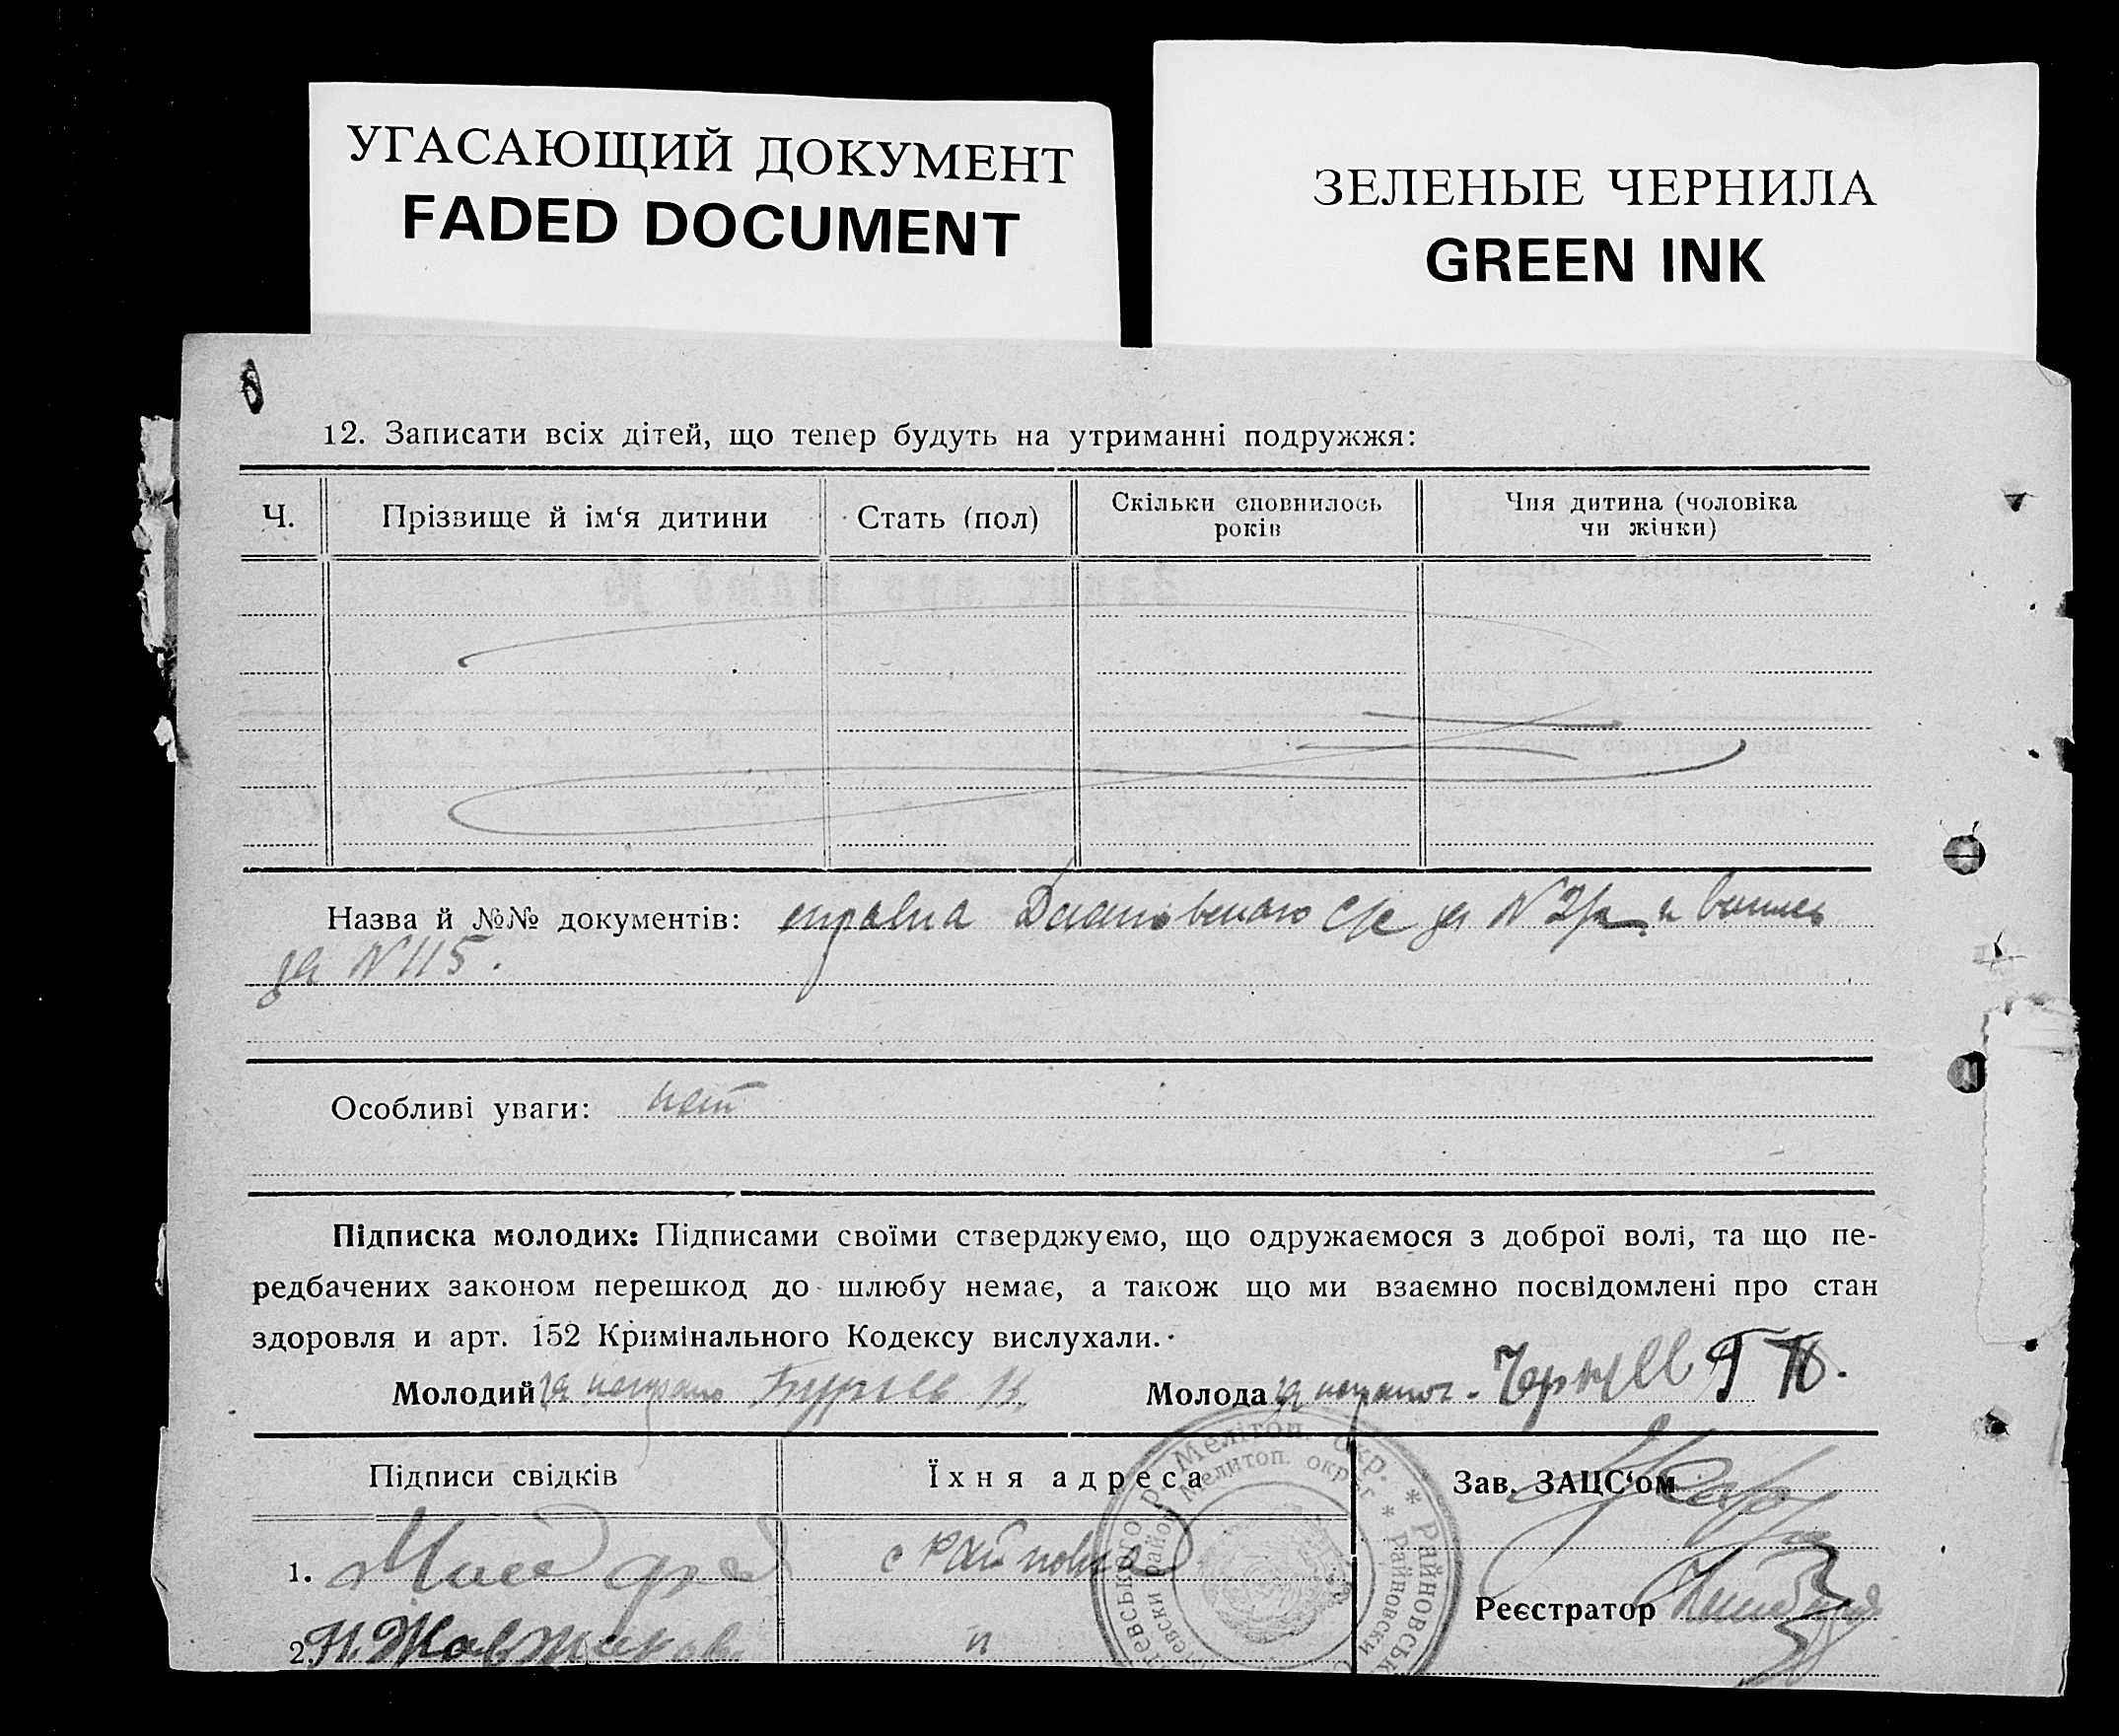 УГАСАЮЩИЙ ДОКУМЕНТ
FADED DOCUMENT
ЗЕЛЕНЫЕ ЧЕРНИЛА
GREEN INK
12. Записати всіх дітей, що тепер будуть на утриманні подружжя:
Ч. Прізвище й ім‘я дитини Стать (пол) Скільки сповнилось років Чия дитина (чоловіка чи жінки)
Назва й №№ документів: справка с/с за №
за N 115.
Особливі уваги: нет
Підписка молодих: Підписами своїми стверджуємо, що одружаємося з доброї волі, та що пе-
редбачених законом перешкод до шлюбу немає, а також що ми взаємно посвідомлені про стан
здоровля и арт. 152 Кримінального Кодексу вислухали.
Молодий за неграмо Молода за неграмот.
Підписи свідків Їхня адреса Зав. ЗАЦС‘ом
1. с Райновка
2. Н. "
Реєстратор
Мелітоп. окр. * Райновськ
Мелитоп. округ * Райновски